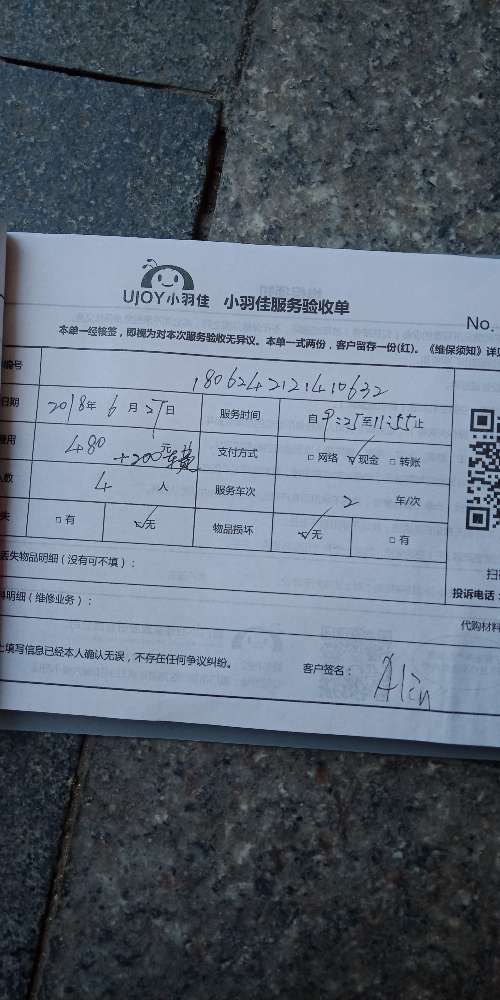 UJOY小羽佳 小羽佳服务验收单
No.
本单一经核签，即视为对本次服务验收无异议。本单一式两份，客户留存一份(红)。《维保须知》详
编号 180624212141 0632
日期 2018年 6 月 27 日 服务时间 自 9:25 至 11:55 止
费用 480 +200元车费 支付方式 □网络 ☑现金 □转账
人数 4 人 服务车次 2 车/次
失 □有 ☑无 物品损坏 ☑无 □有
丢失物品明细（没有可不填）：
扫
料明细（维修业务）：
投诉电话：
代购材料
上填写信息已经本人确认无误，不存在任何争议纠纷。 客户签名：